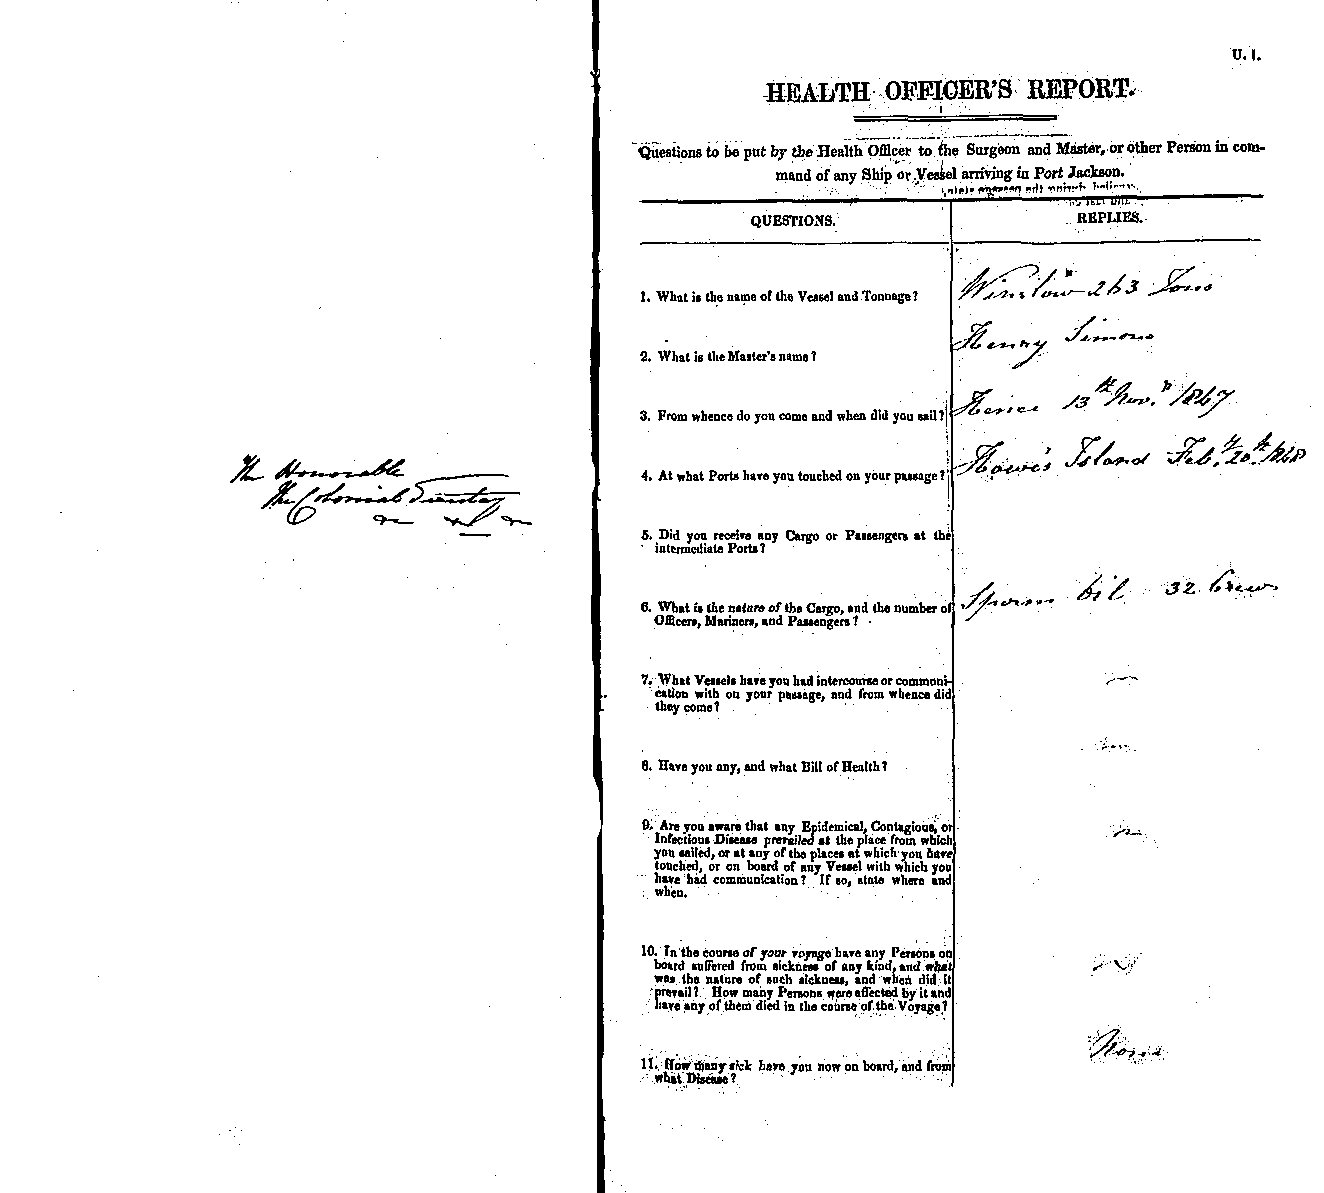 The Honorable
The Colonial Secretary
U. 1.
HEALTH OFFICER'S REPORT.
Questions to be put by the Health Officer to the Surgeon and Master, or other Person in com-
mand of any Ship or Vessel arriving in Port Jackson.
QUESTIONS.
REPLIES.
1. What is the name of the Vessel and Tonnage?
Winslow 263 Tons
2. What is the Master's name?
Henry Simons
3. From whence do you come and when did you sail?
Hence 13th Nov. 1867
4. At what Ports have you touched on your passage?
Howe's Island Feb. 20th 1868
5. Did you receive any Cargo or Passengers at the
intermediate Ports?
6. What is the nature of the Cargo, and the number of
Officers, Mariners, and Passengers?
Sperm Oil 32 Crew
7. What Vessels have you had intercourse or communi-
cation with on your passage, and from whence did
they come?
8. Have you any, and what Bill of Health?
9. Are you aware that any Epidemical, Contagious, or
Infectious Disease prevailed at the place from which
you sailed, or at any of the places at which you have
touched, or on board of any Vessel with which you
have had communication? If so, state where and
when.
10. In the course of your voyage have any Persons on
board suffered from sickness of any kind, and what
was the nature of such sickness, and when did it
prevail? How many Persons were affected by it and
have any of them died in the course of the Voyage?
11. How many sick have you now on board, and from
what Disease?
None